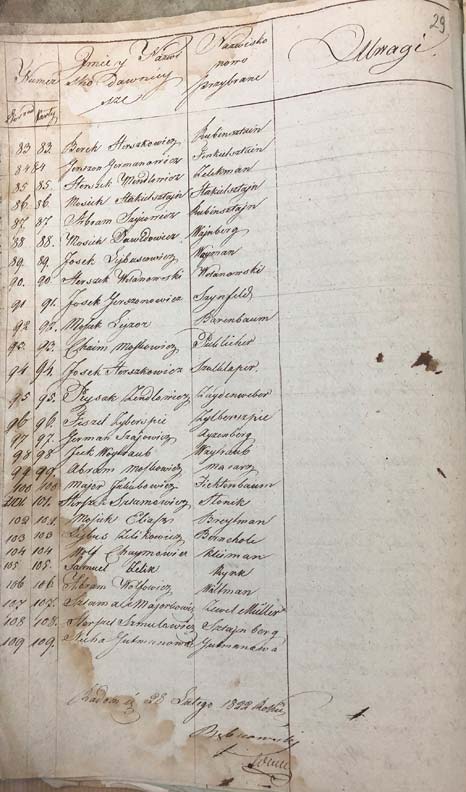 29
Numer Imię y Nazwi Nazwisko Uwagi
sko Dawniey nowo
sze przybrane
Karty
83 83. Berek Herszkowicz Rubinsztein
84 84 Jerszon Germanowicz Finkielsztein
85 85. Herszek Mendlowicz Zelekman
86. 86. Mosiek Stakielsztajn Stakielsztajn
87. 87. Abram Rubinsztajn
88 88. Mosiek Dawidowicz Wajnberg
89. 89. Josek Lejbusiowicz Wayman
90. 90. Herszek Wolanowski Wolanowski
91 91. Josek Jerszonowicz Szynfeld
92 92. Mosiek Leyzor Barenbaum
93. 93. Chaim Moszkowicz Publicher
94 94. Josek Herszkowicz Szalklaper
95 95. Zendlowicz Zaydenweber
96 96. Fiszel Zyberszpic Zylberszpic
97 97. German Szajowicz Ayzenberg
98 98 Icek Waytraub Waytraub
99 99. Abram Moszkowicz
100 100 Majer Jakubowicz Fichtenbaum
101 101. Herszek Szlamowicz Słonik
102 102. Mosiek Eliasz Breytman
103 103 Leybus Zelikowicz
104 104 Wolf Chaymowicz Kleiman
105 105. Samuel Zelik Rynk
106 106. Abram Wolfowicz Waltman
107 107. Szlama Majorkowicz Zewel Müller
108 108. Herszel Szmulowicz Sztajnberg
109. 109. Ruchla Gutmanowa Gutmanowa
Radom d. 28 Lutego 1822 Roku